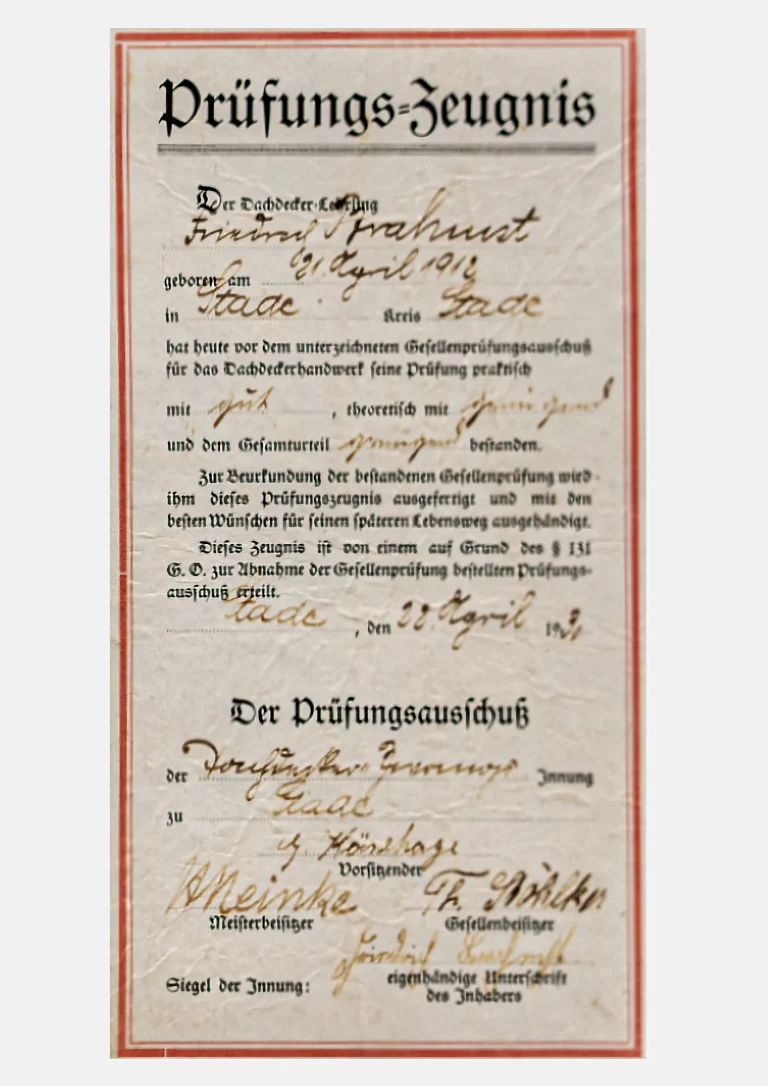 Prüfungs-Zeugnis
Der Dachdecker-Lehrling
Friedrich
geboren am 21. April 1912
in Stade Kreis Stade
hat heute vor dem unterzeichneten Gesellenprüfungsausschuß
für das Dachdeckerhandwerk seine Prüfung praktisch
mit gut, theoretisch mit genügend
und dem Gesamturteil genügend bestanden.
Zur Beurkundung der bestandenen Gesellenprüfung wird
ihm dieses Prüfungszeugnis ausgefertigt und mit den
besten Wünschen für seinen späteren Lebensweg ausgehändigt.
Dieses Zeugnis ist von einem auf Grund des § 131
G. O. zur Abnahme der Gesellenprüfung bestellten Prüfungs-
ausschuß erteilt.
Stade, den 22. April 1930
Der Prüfungsausschuß
der Innung
zu Stade
Vorsitzender
Meinke Th.
Meisterbeisitzer Gesellenbeisitzer
Friedrich
Siegel der Innung: eigenhändige Unterschrift
des Inhabers